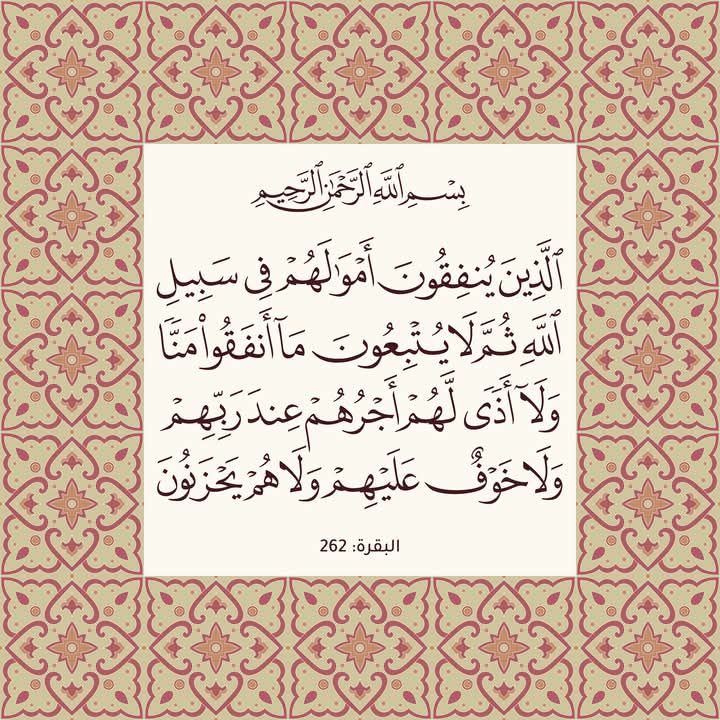 بِسْمِ ٱللَّهِ ٱلرَّحْمَٰنِ ٱلرَّحِيمِ
ٱلَّذِينَ يُنفِقُونَ أَمْوَٰلَهُمْ فِى سَبِيلِ
ٱللَّهِ ثُمَّ لَا يُتْبِعُونَ مَآ أَنفَقُوا۟ مَنًّا
وَلَآ أَذًى لَّهُمْ أَجْرُهُمْ عِندَ رَبِّهِمْ
وَلَا خَوْفٌ عَلَيْهِمْ وَلَا هُمْ يَحْزَنُونَ
البقرة: 262